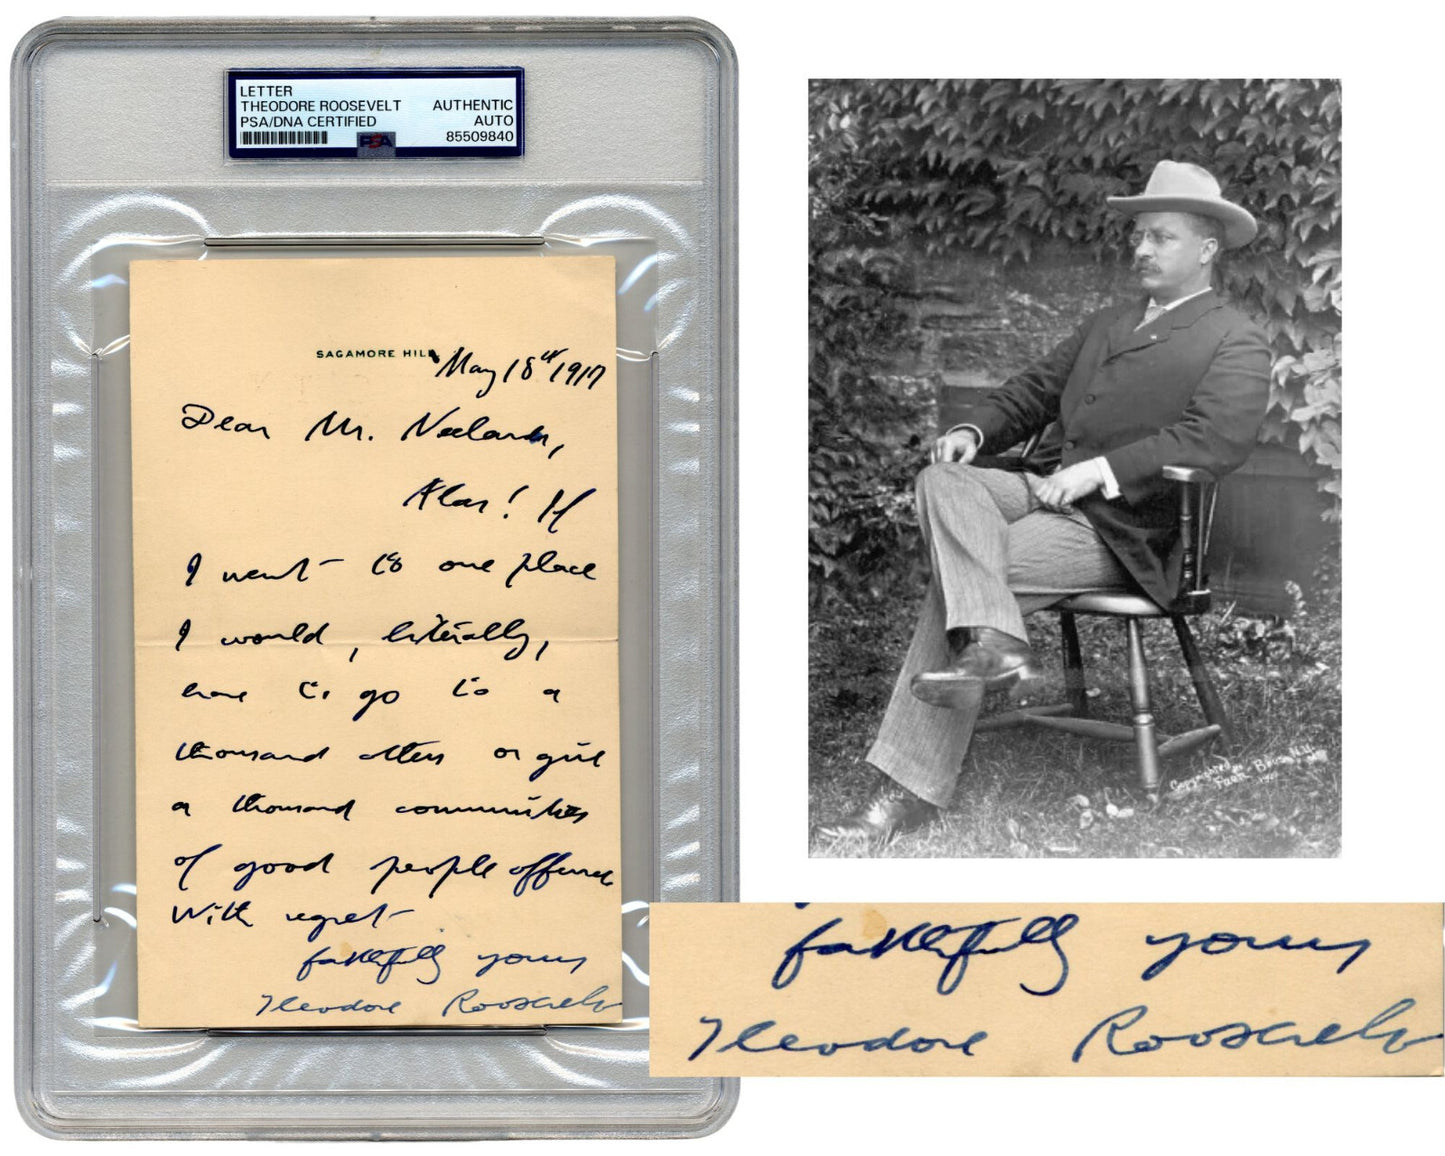 LETTER
THEODORE ROOSEVELT AUTHENTIC
PSA/DNA CERTIFIED AUTO
PSA 85509840
SAGAMORE HILL
May 18th 1917
Dear Mr.
Alas! If
I went to one place
I would, literally,
have to go to a
thousand others or give
a thousand communities
of good people offence
With regret
faithfully yours
Theodore Roosevelt
Copyrighted
faithfully yours
Theodore Roosevelt